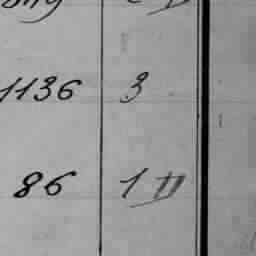 1136 3
86 1 II